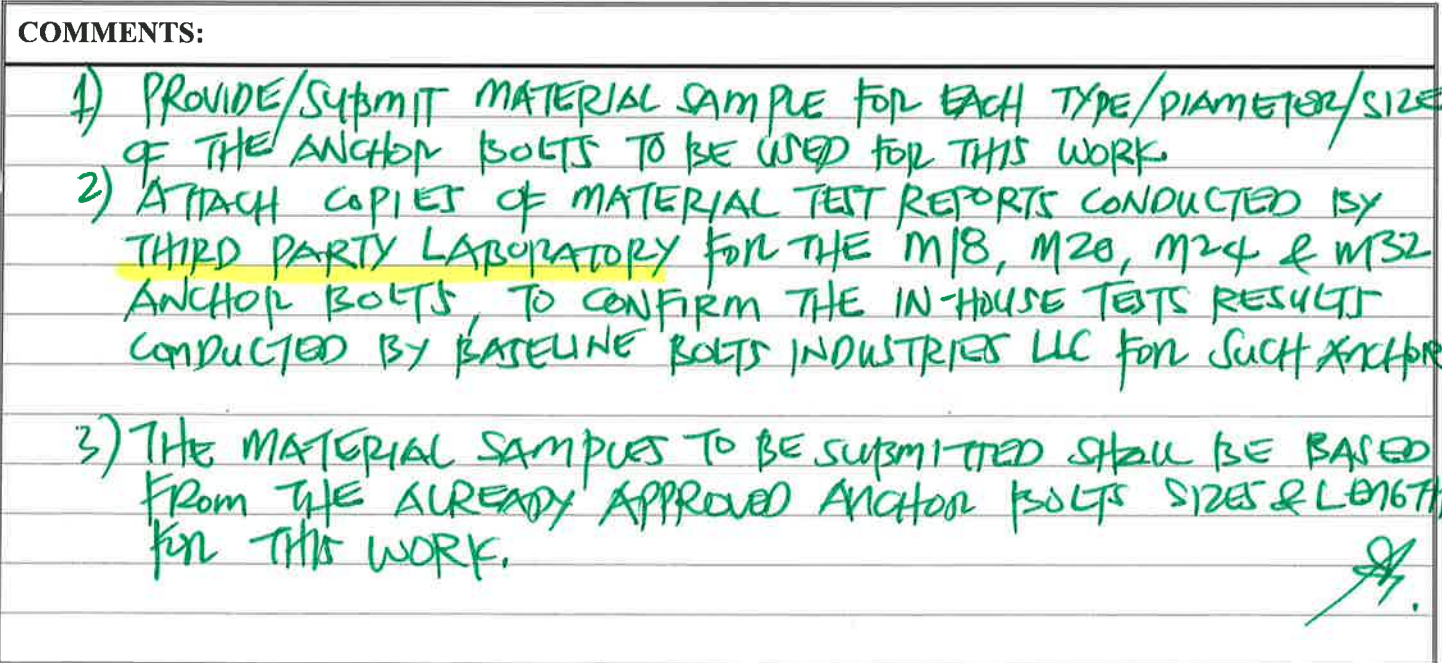 COMMENTS:
1) PROVIDE/SUBMIT MATERIAL SAMPLE FOR EACH TYPE/DIAMETER/SIZE
OF THE ANCHOR BOLTS TO BE USED FOR THIS WORK.
2) ATTACH COPIES OF MATERIAL TEST REPORTS CONDUCTED BY
THIRD PARTY LABORATORY FOR THE M18, M20, M24 & M32
ANCHOR BOLTS, TO CONFIRM THE IN-HOUSE TESTS RESULTS
CONDUCTED BY BASELINE BOLTS INDUSTRIES LLC FOR SUCH ANCHOR
3) THE MATERIAL SAMPLES TO BE SUBMITTED SHALL BE BASED
FROM THE ALREADY APPROVED ANCHOR BOLTS SIZES & LENGTH
FOR THIS WORK.